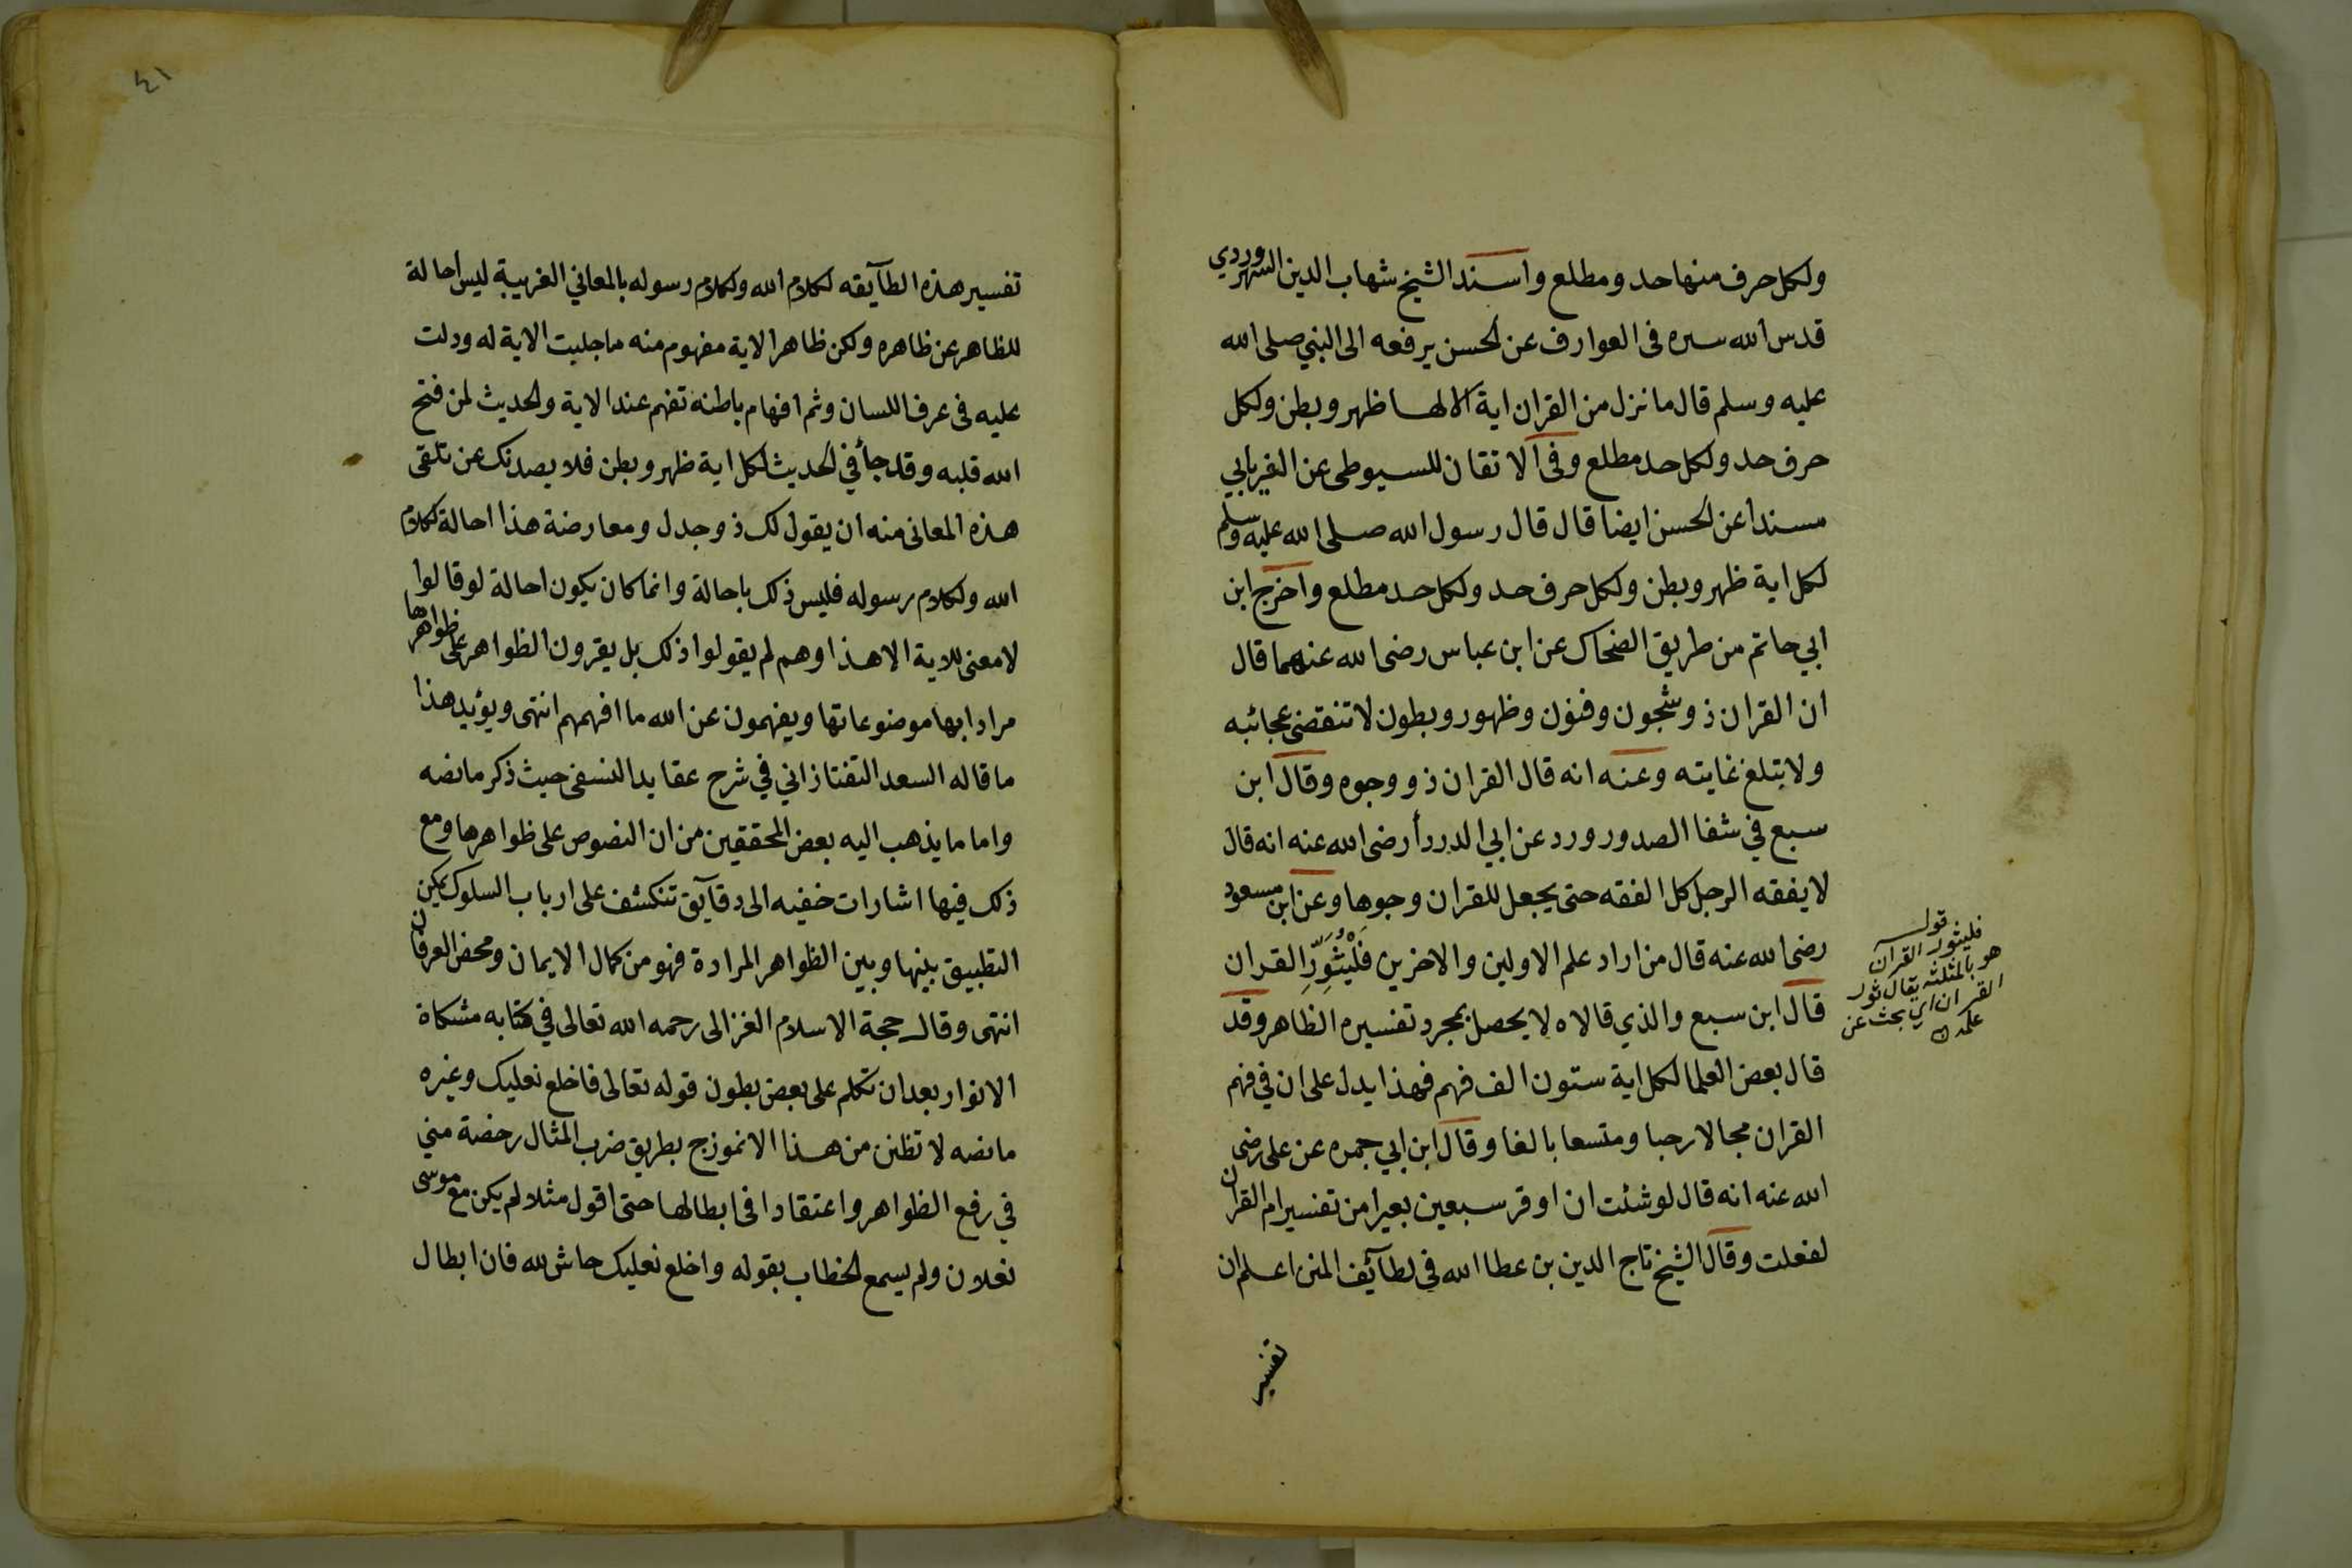 ولكل حرف منها حد ومطلع واسند الشيخ شهاب الدين السهروردي
قدس الله سره فى العوارف عن الحسن يرفعه الى النبي صلى الله
عليه وسلم قال ما نزل من القران اية الا لها ظهر وبطن ولكل
حرف حد ولكل حد مطلع وفى الاتقان للسيوطى عن الفريابي
مسندا عن الحسن ايضا قال قال رسول الله صلى الله عليه وسلم
لكل اية ظهر وبطن ولكل حرف حد ولكل حد مطلع واخرج ابن
ابي حاتم من طريق الضحاك عن ابن عباس رضى الله عنهما قال
ان القران ذو شجون وفنون وظهور وبطون لا تنقضى عجائبه
ولا يتلغ غايته وعنه انه قال القران ذو وجوه وقال ابن
سبع في شفا الصدور ورد عن ابي الدردأ رضى الله عنه انه قال
لا يفقه الرجل كل الفقه حتى يجعل للقران وجوها وعن ابن مسعود
رضى الله عنه قال من اراد علم الاولين والاخرين فَلْيُثَوِّرِ القران
قال ابن سبع والذي قالاه لا يحصل بمجرد تفسيره الظاهر وقد
قال بعض العلما لكل اية ستون الف فهم فهذا يدل على ان في فهم
القران مجالا رحبا ومتسعا بالغا وقال ابن ابي جمره عن على رضى
الله عنه انه قال لو شئت ان اوقر سبعين بعيرا من تفسير ام القران
لفعلت وقال الشيخ تاج الدين بن عطا الله في لطآئف المنن اعلم ان
تفسير
قوله
فليثور القران
هو بالمثلثه يقال ثور
القران اي بحث عن
علمه
٤١
تفسير هذه الطآيقه لكلام الله وكلام رسوله بالمعاني الغريبة ليس احالة
للظاهر عن ظاهره ولكن ظاهر الاية مفهوم منه ما جليت الاية له ودلت
عليه فى عرف اللسان وثم افهام باطنه تفهم عند الاية والحديث لمن فتح
الله قلبه وقد جأ في الحديث لكل اية ظهر وبطن فلا يصدنك عن تلقى
هذه المعانى منه ان يقول لك ذو جدل ومعارضة هذا احالة لكلام
الله ولكلام رسوله فليس ذلك باحالة وانما كان يكون احالة لو قالوا
لا معنى للاية الا هذا وهم لم يقولوا ذلك بل يقرون الظواهر على ظواهرها
مرادا بها موضوعاتها ويفهمون عن الله ما افهمهم انتهى ويؤيد هذا
ما قاله السعد التفتازاني في شرح عقايد النسفى حيث ذكر ما نصه
واما ما يذهب اليه بعض المحققين من ان النصوص على ظواهرها ومع
ذلك فيها اشارات خفيه الى دقآيق تنكشف على ارباب السلوك يمكن
التطبيق بينها وبين الظواهر المرادة فهو من كمال الايمان ومحض العرفان
انتهى وقال حجة الاسلام الغزالى رحمه الله تعالى في كتابه مشكاة
الانوار بعد ان تكلم على بعض بطون قوله تعالى فاخلع نعليك وغيره
ما نصه لا تظنن من هذا الانموزج بطريق ضرب المثال رخصة مني
في رفع الظواهر واعتقادا فى ابطالها حتى اقول مثلا لم يكن مع موسى
نعلان ولم يسمع الخطاب بقوله واخلع نعليك حاش لله فان ابطال